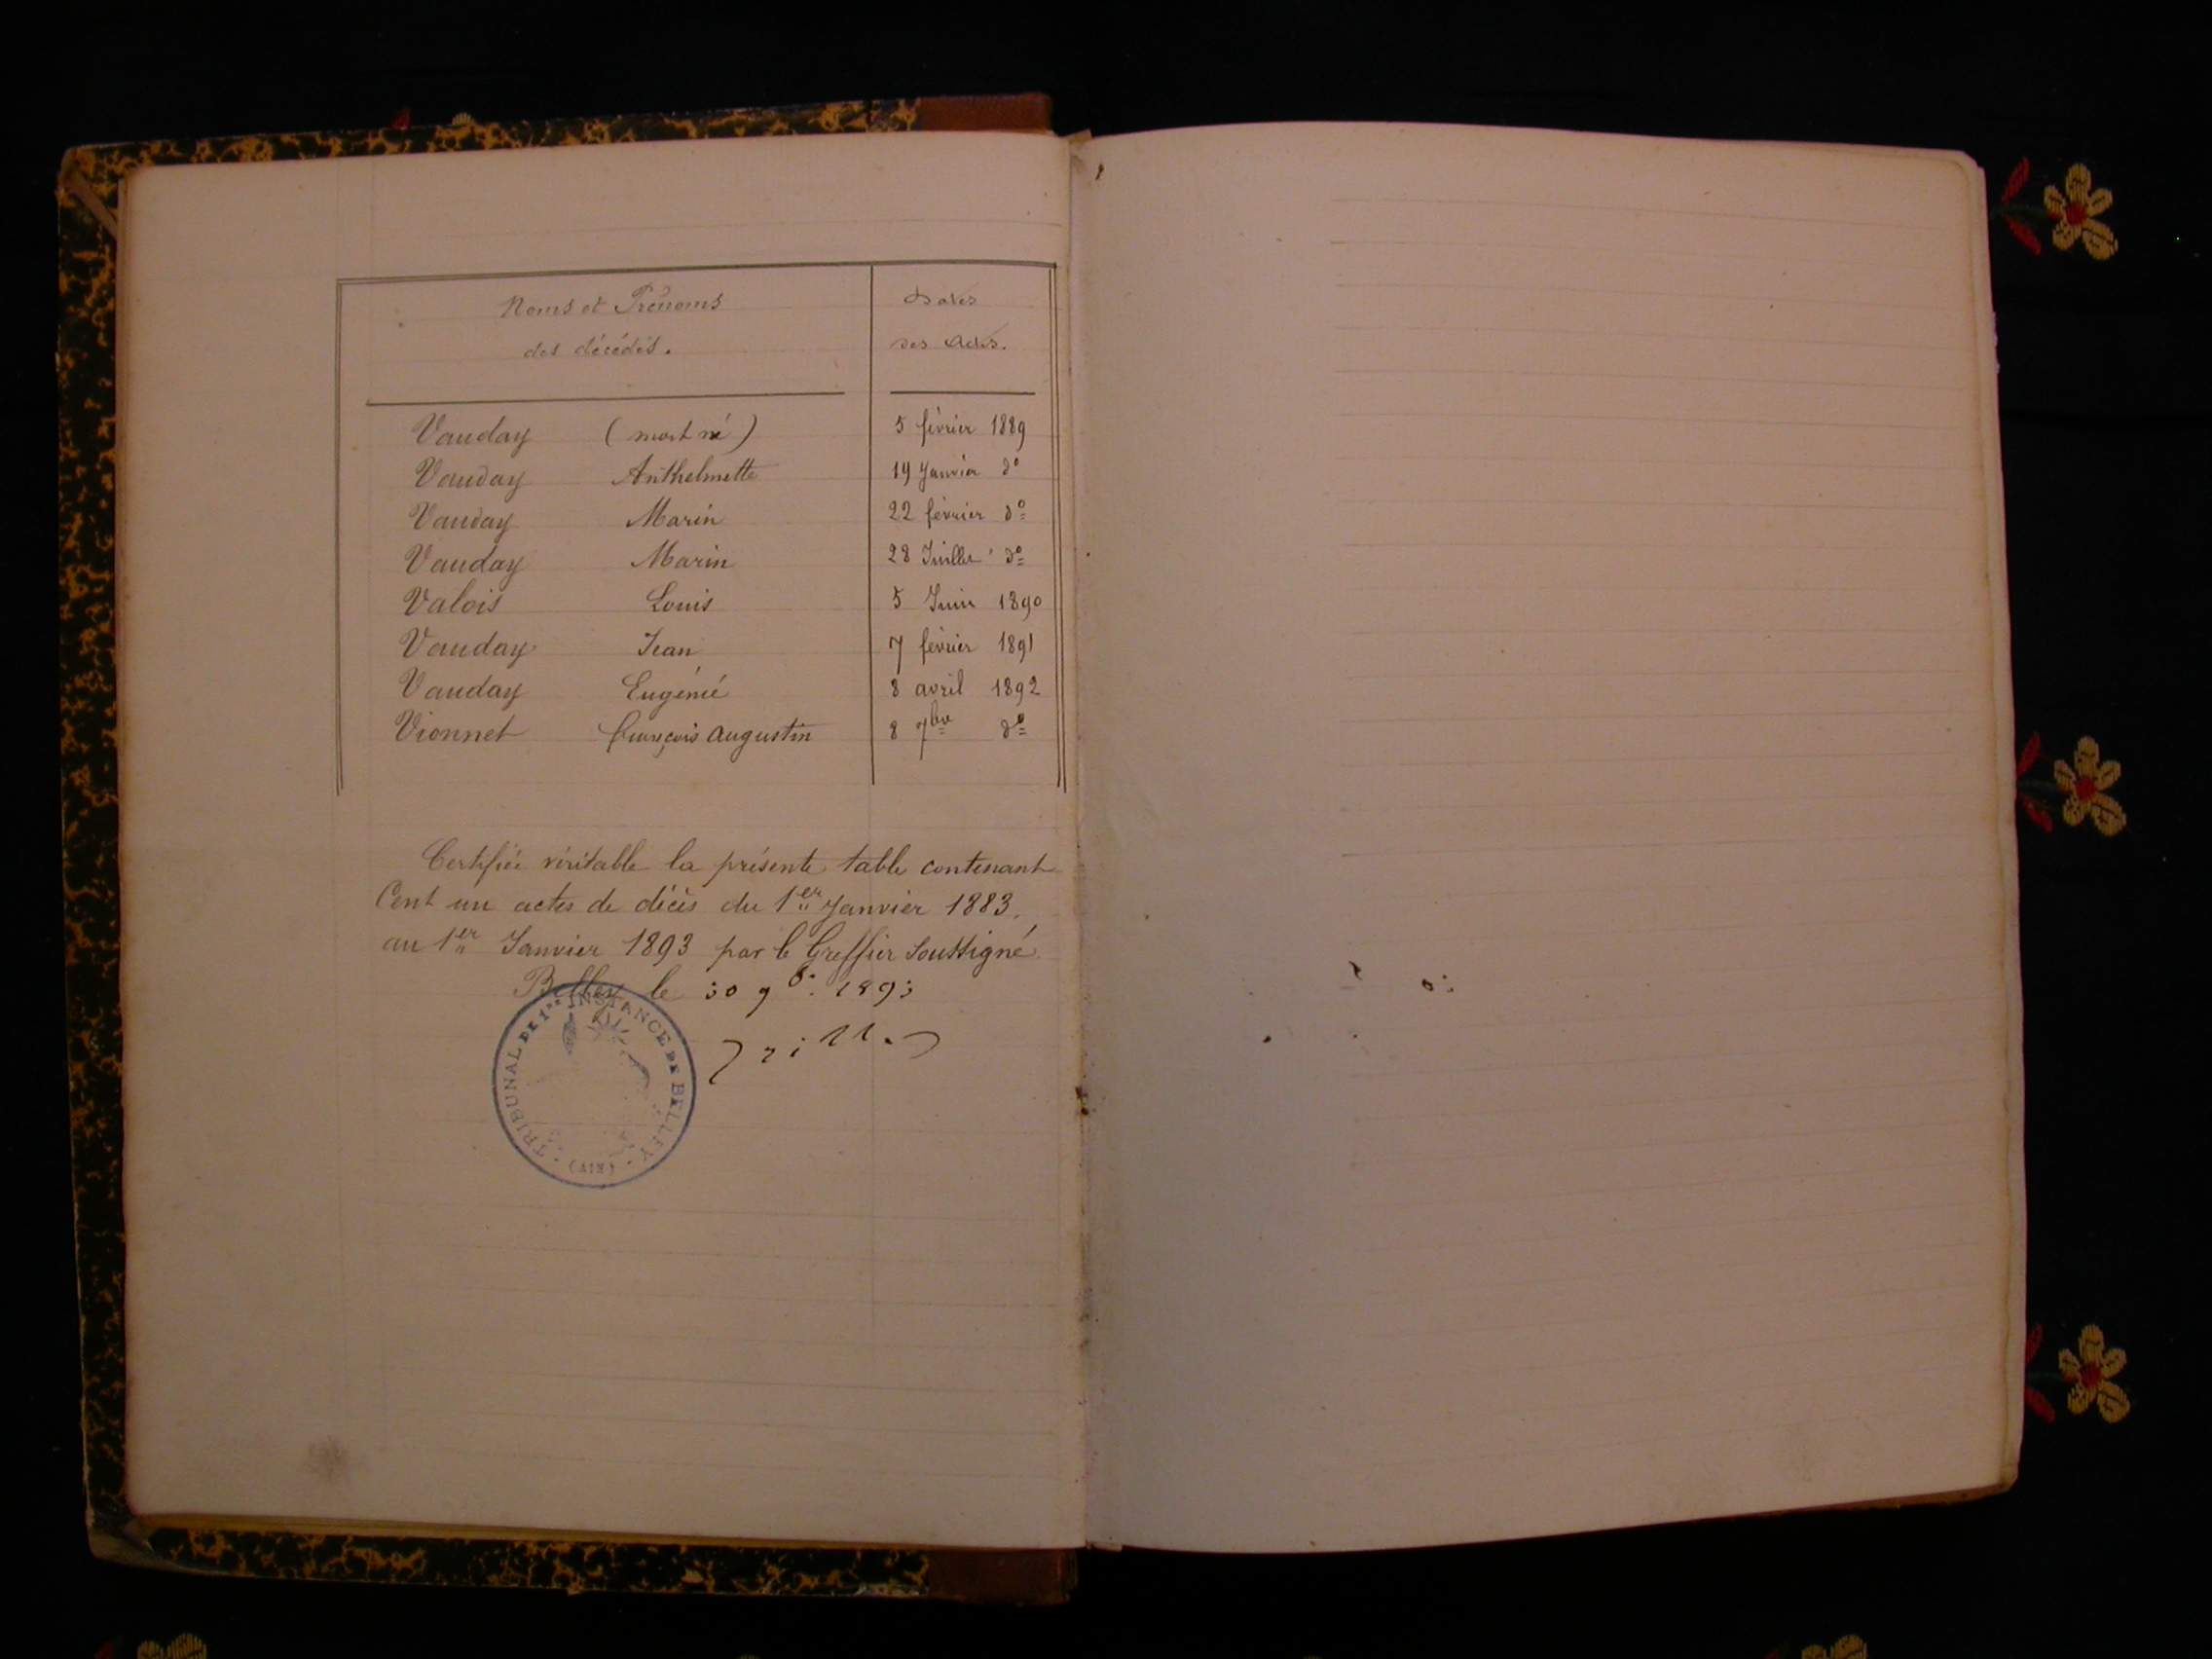 Noms et Prénoms
des décédés.
Dates
des Actes.
Vauday (mort né) 5 février 1889
Vauday Anthelmette 19 Janvier d°
Vauday Marin 22 février d°
Vauday Marin 28 Juillet d°
Valois Louis 5 Juin 1890
Vauday Jean 7 février 1891
Vauday Eugénie 8 avril 1892
Vionnet François Augustin 8 7bre d°
Certifiée véritable la présente table contenant
Cent un actes de décès du 1er Janvier 1883.
au 1er Janvier 1893 par le Greffier Soussigné.
Belley le 30 9b. 1893
TRIBUNAL DE 1RE INSTANCE DE BELLEY
(AIN)